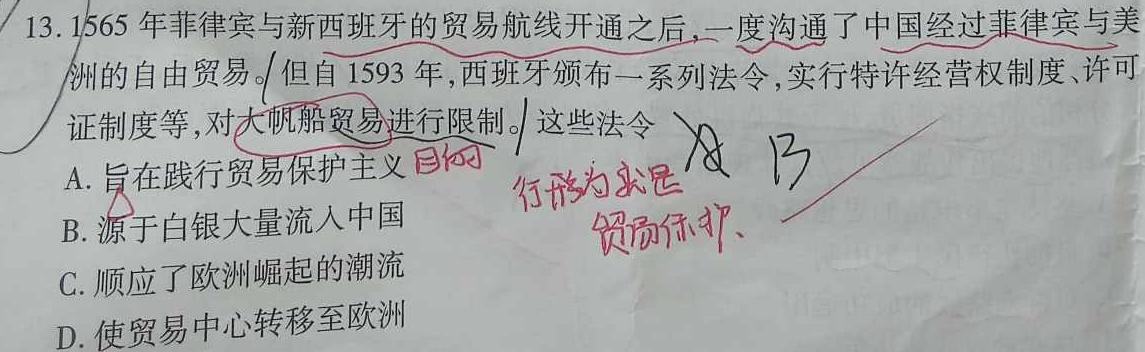 13. 1565 年菲律宾与新西班牙的贸易航线开通之后,一度沟通了中国经过菲律宾与美
洲的自由贸易。但自 1593 年,西班牙颁布一系列法令,实行特许经营权制度、许可
证制度等,对大帆船贸易进行限制。这些法令 B
A. 旨在践行贸易保护主义 目的
行为就是
贸易保护、
B. 源于白银大量流入中国
C. 顺应了欧洲崛起的潮流
D. 使贸易中心转移至欧洲